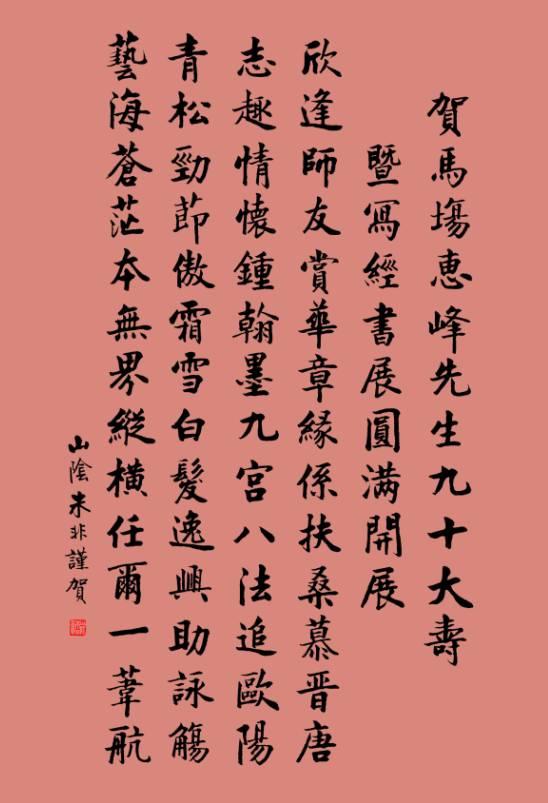 賀馬塲恵峰先生九十大壽
暨寫經書展圓满開展
欣逢師友賞華章緣係扶桑慕晋唐
志趣情懷鍾翰墨九宫八法追歐陽
青松勁節傲霜雪白髮逸興助詠觴
藝海蒼茫本無界縱横任爾一葦航
山陰非謹賀